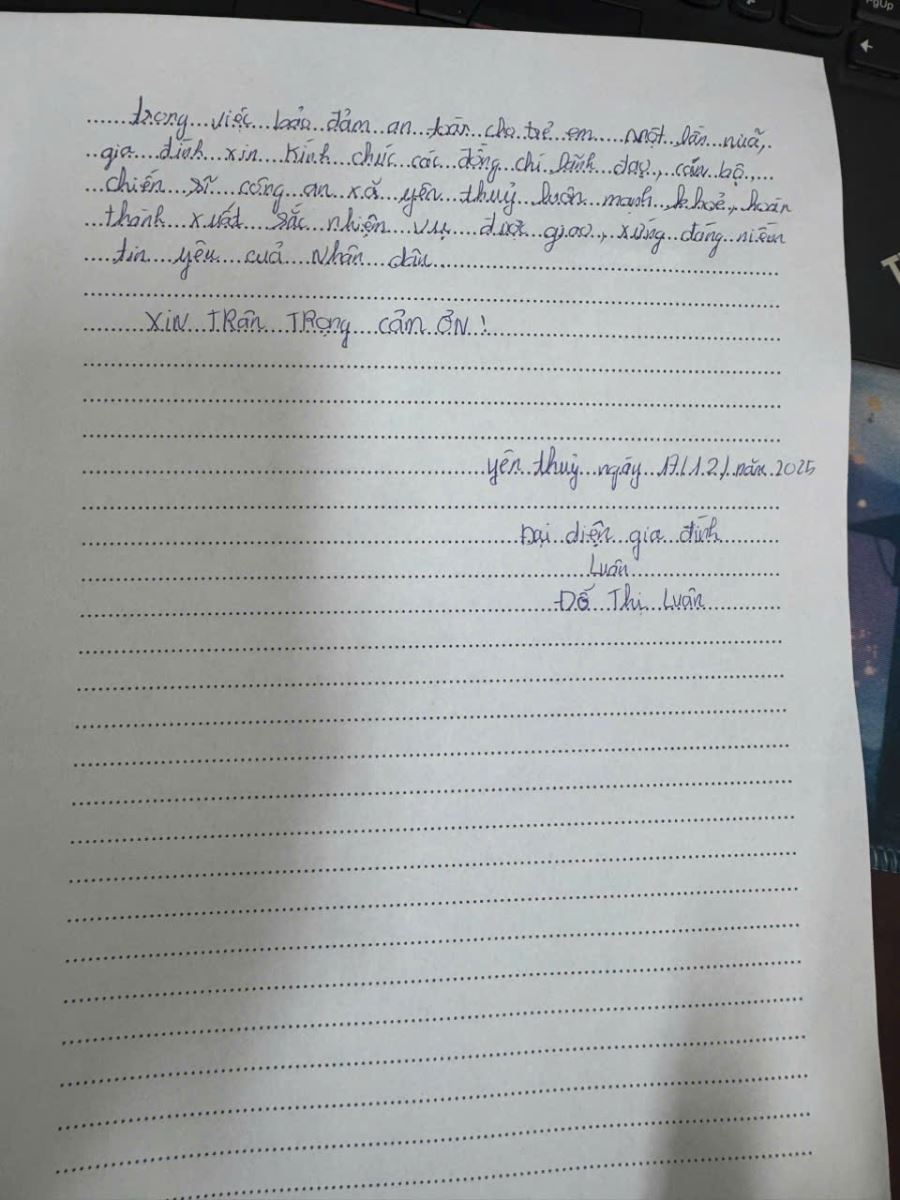 trọng việc bảo đảm an toàn cho trẻ em. Một lần nữa,
gia đình xin kính chúc các đồng chí lãnh đạo, cán bộ,
chiến sĩ công an xã yên thuỷ luôn mạnh khoẻ, hoàn
thành xuất sắc nhiện vụ được giao, xứng đáng niềm
tin yêu cuả Nhân dân
XIN TRÂN TRỌNG CẢM ƠN!
yên thuỷ ngày 17/12/ năm 2025
Đại diện gia đình
Luân
Đỗ Thị Luân
PgUp